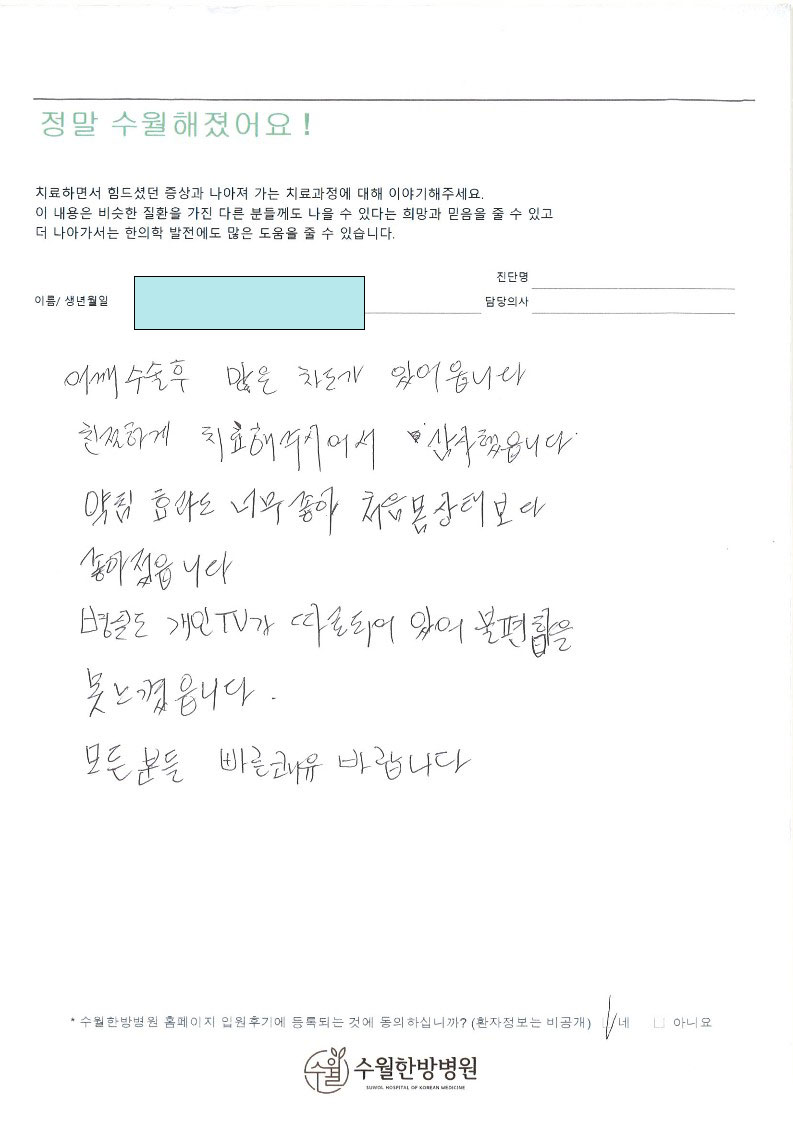 정말 수월해졌어요!
치료하면서 힘드셨던 증상과 나아져 가는 치료과정에 대해 이야기해주세요.
이 내용은 비슷한 질환을 가진 다른 분들께도 나을 수 있다는 희망과 믿음을 줄 수 있고
더 나아가서는 한의학 발전에도 많은 도움을 줄 수 있습니다.
진단명
이름/ 생년월일 담당의사
어깨수술후 많은 차도가 있어읍니다
친절하게 치료해주시어서 감사했읍니다
약침 효과도 너무좋아 처음몸상태보다
좋아졌읍니다
병실도 개인TV가 따로되어 있어 불편함을
못느꼈읍니다.
모든분들 빠른쾌유 바랍니다
* 수월한방병원 홈페이지 입원후기에 등록되는 것에 동의하십니까? (환자정보는 비공개) 네 아니요
수월 수월한방병원
SUWOL HOSPITAL OF KOREAN MEDICINE